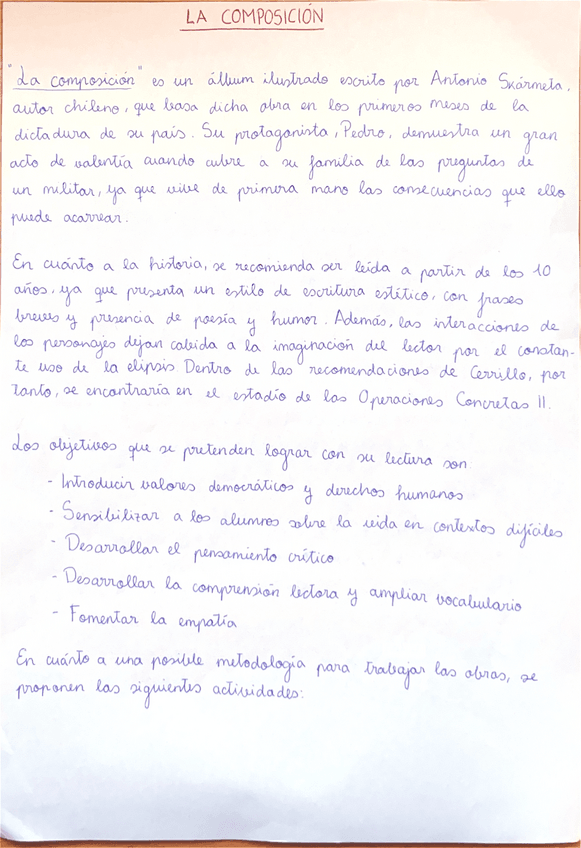 LA COMPOSICIÓN
"La composición" es un álbum ilustrado escrito por Antonio Skármeta,
autor chileno, que basa dicha obra en los primeros meses de la
dictadura de su país. Su protagonista, Pedro, demuestra un gran
acto de valentía cuando cubre a su familia de las preguntas de
un militar, ya que vive de primera mano las consecuencias que ello
puede acarrear.
En cuánto a la historia, se recomienda ser leída a partir de los 10
años, ya que presenta un estilo de escritura estético, con frases
breves y presencia de poesía y humor. Además, las interacciones de
los personajes dejan cabida a la imaginación del lector por el constan-
te uso de la elipsis. Dentro de las recomendaciones de Cerrillo, por
tanto, se encontraría en el estadio de las Operaciones Concretas II.
Los objetivos que se pretenden lograr con su lectura son
- Introducir valores democráticos y derechos humanos
- Sensibilizar a los alumnos sobre la vida en contextos difíciles
- Desarrollar el pensamiento crítico
- Desarrollar la comprensión lectora y ampliar vocabulario
- Fomentar la empatía
En cuánto a una posible metodología para trabajar las obras, se
proponen las siguientes actividades: